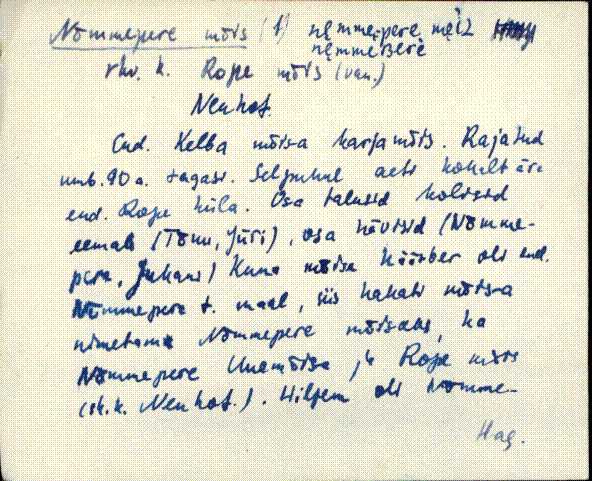 Nõmmepere mõis (1) nemmepere meiz
nemmeBere
rhv. k. Rope mõis (van.)
Neuhof.
End. Kelba mõisa karjamõis. Rajatud
umb. 90 a. tagasi. Seljuhul aeti kohalt ära
end. Rope küla. Osa talusid kolisid
eemale (Tõnu, Jüri), osa hävisid (Nõmme-
pere, Juhani) Kuna mõisa häärber oli end.
Nõmmepere t. maal, siis hakati mõisa
nimetama Nõmmepere mõisaks, ka
Nõmmepere Uuemõisa ja Rope mõis
(sk. k. Neuhof.). Hiljem oli Nõmme-
Hag.